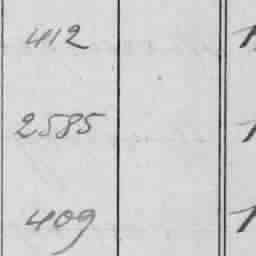 412
2585
409